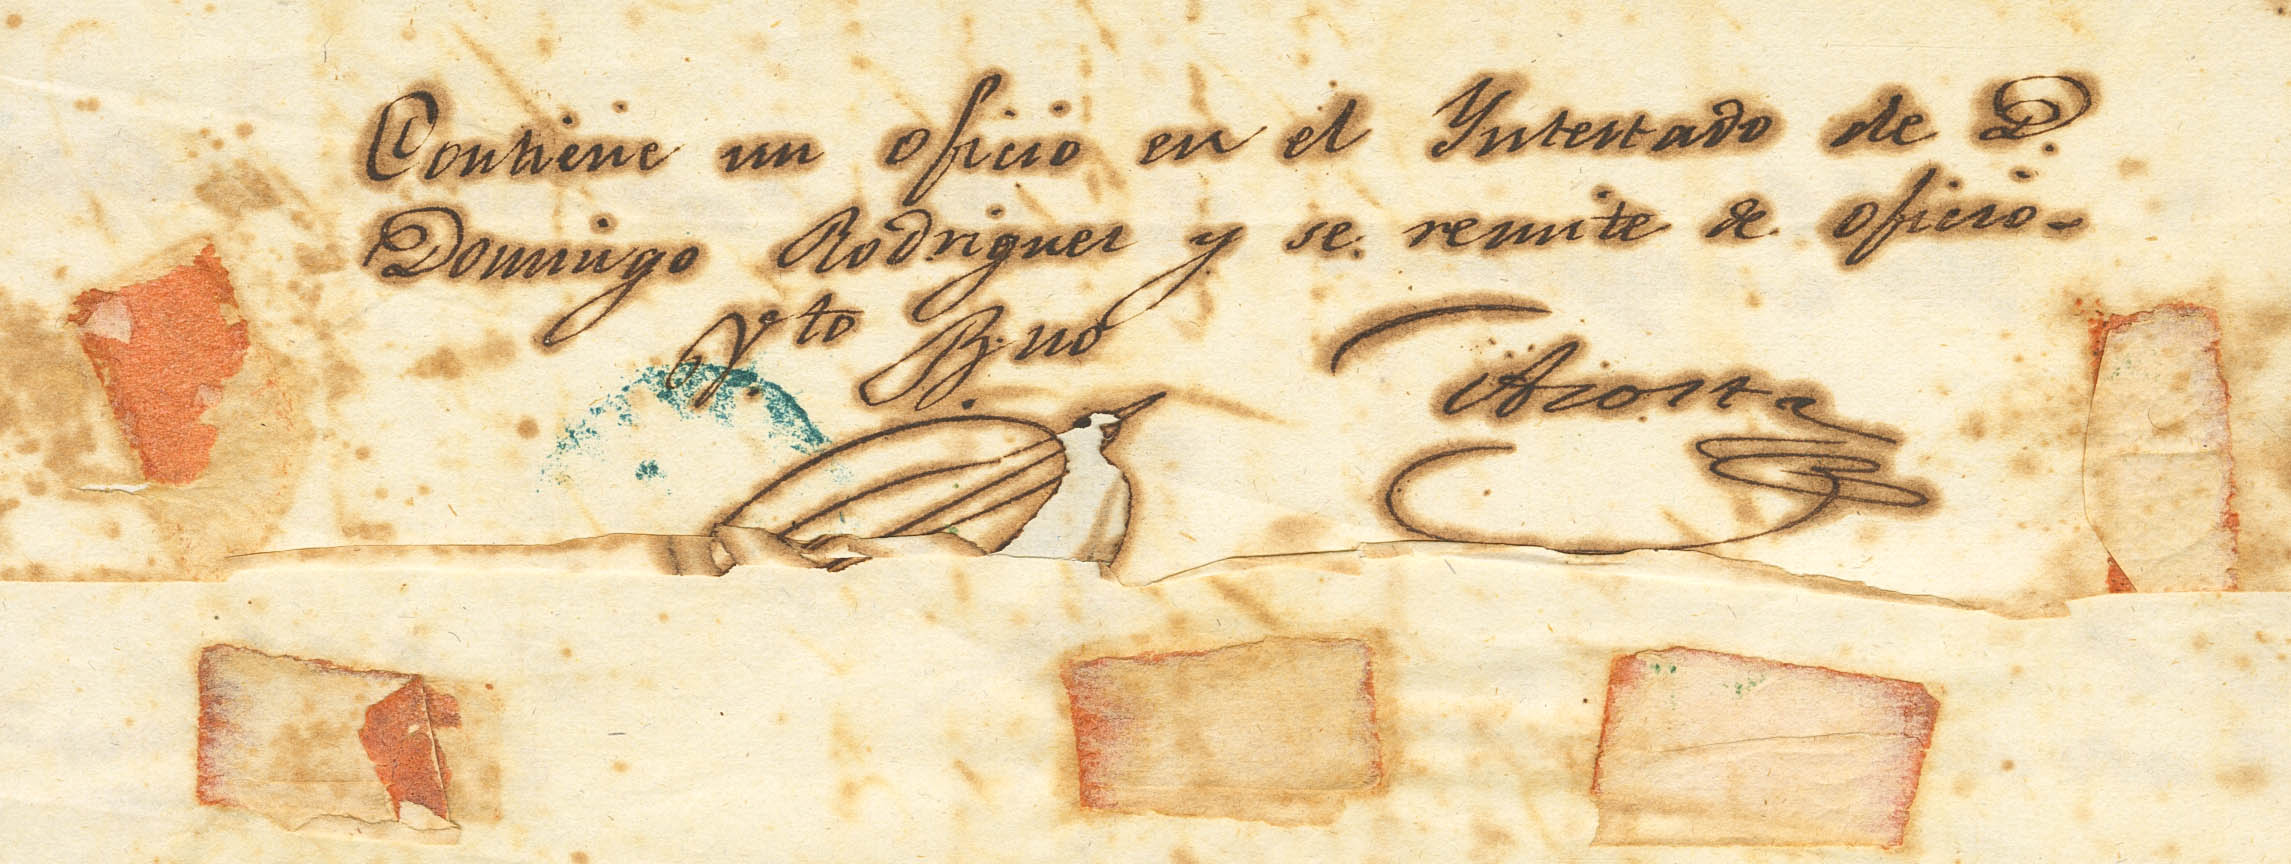 Contiene un oficio en el Yntestado de D.
Domingo Rodriguez y se remite de oficio-
V.to B.no
Acosta